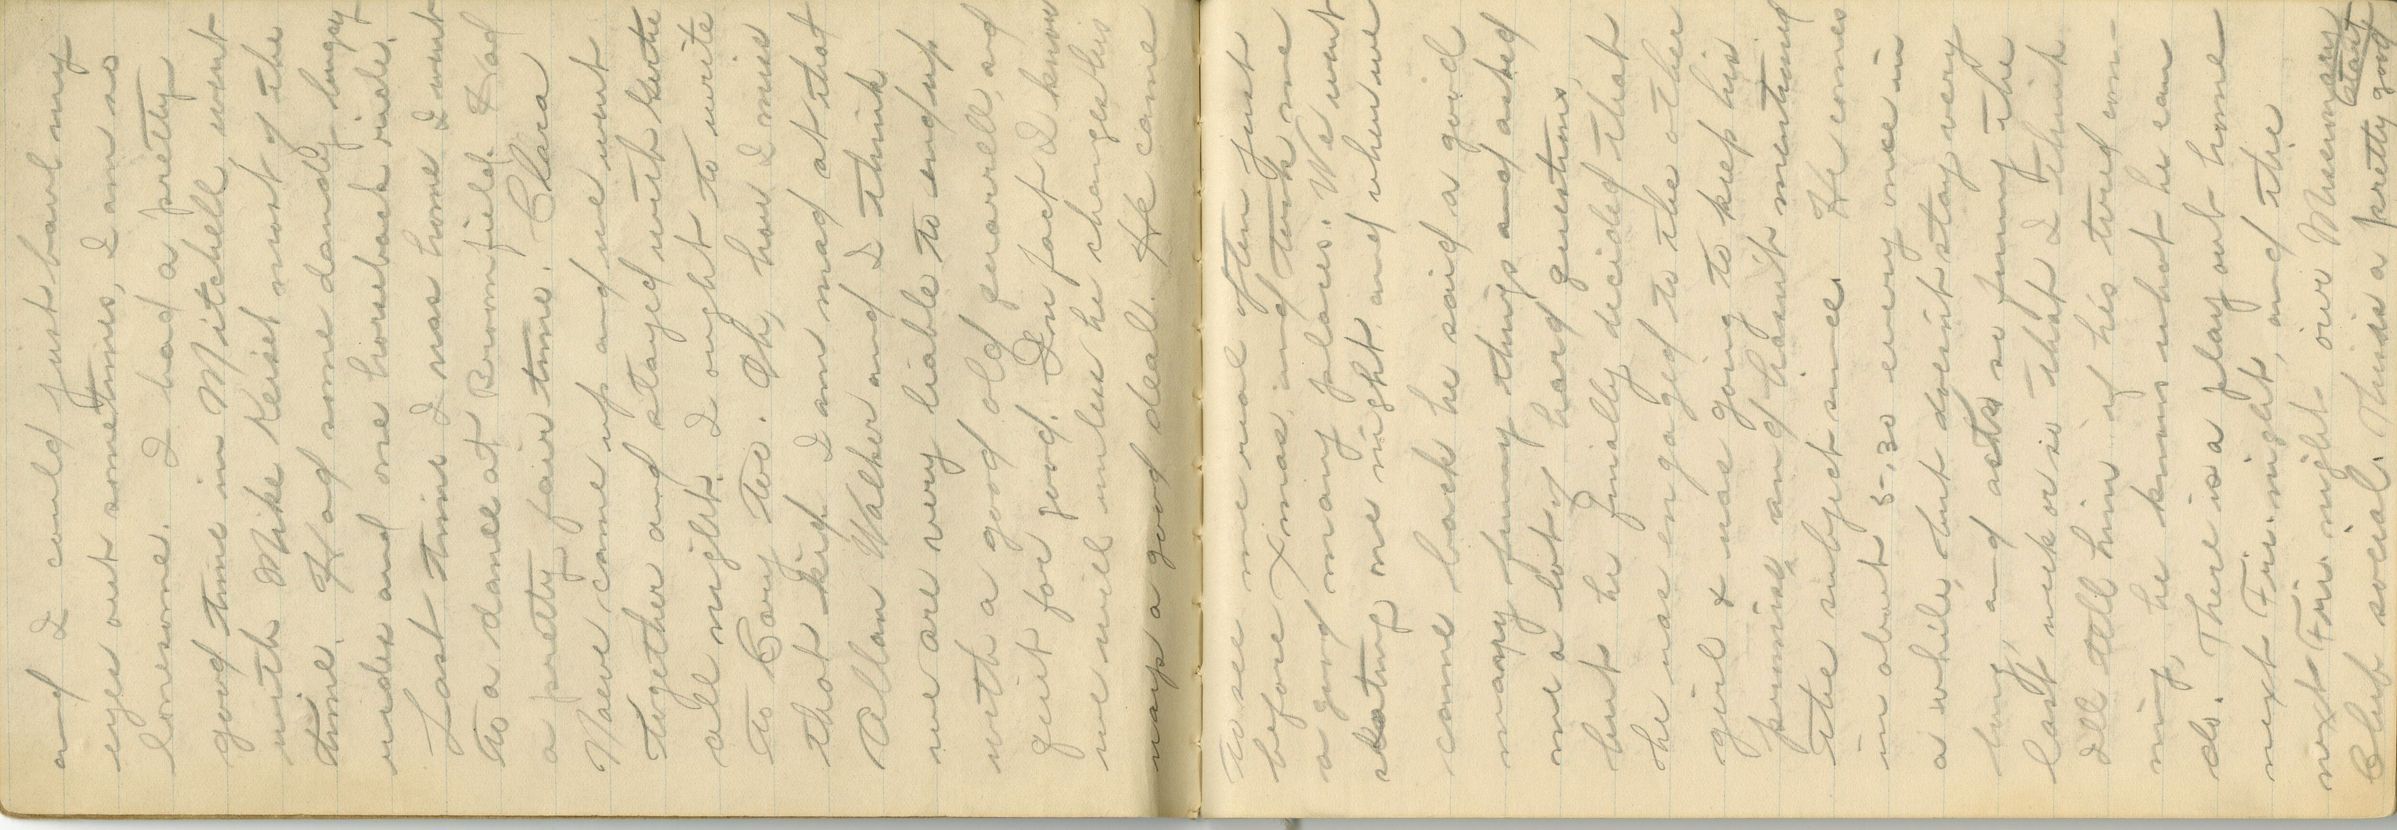 and I could just bawl my
eyes out sometimes, I am so
lonesome. I had a pretty
good time in Mitchell went
with Mike Keiset most of the
time. Had some dandy buggy
rides and one horseback ride.
Last time I was home I went
to a dance at Broomfield. Had
a pretty fair time. Clara
Naeve came up and we went
together and stayed with Gertie
all night. I ought to write
to Cary too. Oh, how I miss
that kid. I am mad at that
Allan Walker and I think
we are very liable to end up
with a good old quarrell, and
quit for good. In fact I know
we will unless he changes his
ways a good deal. He came
to see me real often just
before Xmas and took me
a good many places. We went
skating one night and when we
came back he said a good
many funny things and asked
me a lot of hard questions,
but he finally decided that
he was engaged to the other
girl & was going to keep his
promise, and hasn't mentioned
the subject since. He comes
in about 5:30 every once in
a while, but doesn't stay very
long, and acts so funny the
last week or so that I think
I'll tell him if he's tired com-
ing, he knows what he can
do. There is a play out home
next Fri. night, and the
next Fri. night our Missionary
Club social. This is a pretty good
start